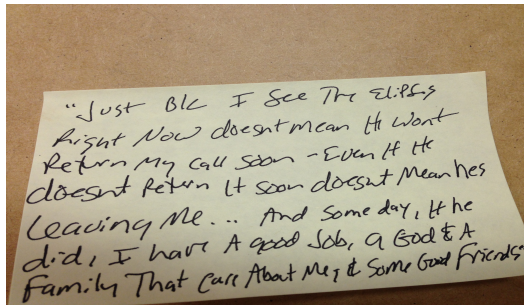 "Just B/c I See The Elipsis
Right Now doesnt mean He Wont
Return My Call soon - Even If He
doesnt Return It soon doesnt Mean hes
Leaving Me... And some day, If he
did, I have A good Job, a God & A
Family That Care About Me, & Some Good Friends"